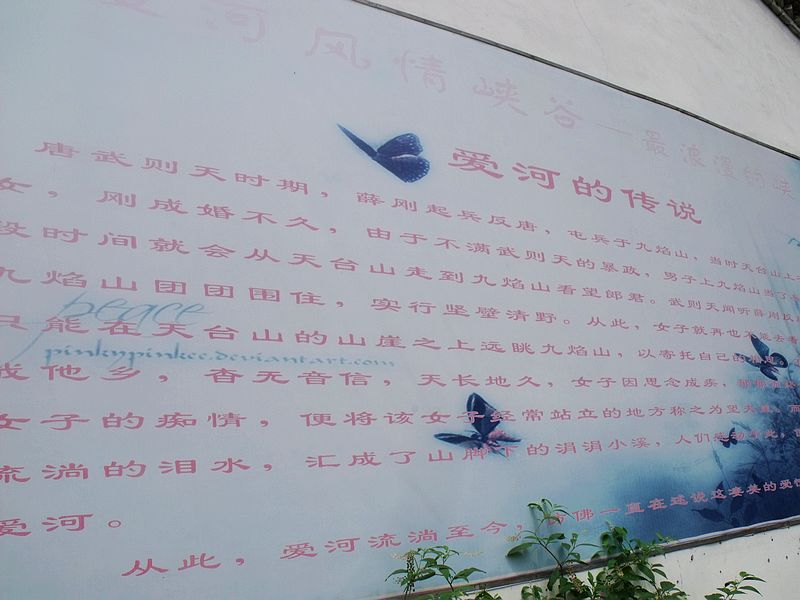 河风情峡谷—最浪漫的峡
爱河的传说
唐武则天时期，薛刚起兵反唐，屯兵于九焰山，当时天台山上
女，刚成婚不久，由于不满武则天的暴政，男子上九焰山当了
段时间就会从天台山走到九焰山看望郎君。武则天闻听薛刚
九焰山团团围住，实行坚壁清野。从此，女子就再也不能去看
peace
只能在天台山的山崖之上远眺九焰山，以寄托自己的
pinkypinkee.deviantart.com
成他乡，杳无音信，天长地久，女子因思念成疾，
女子的痴情，便将该女子经常站立的地方称之为望夫崖。而
流淌的泪水，汇成了山脚下的涓涓小溪，人们感动
爱河。
从此，爱河流淌至今，仿佛一直在述说这凄美的爱情